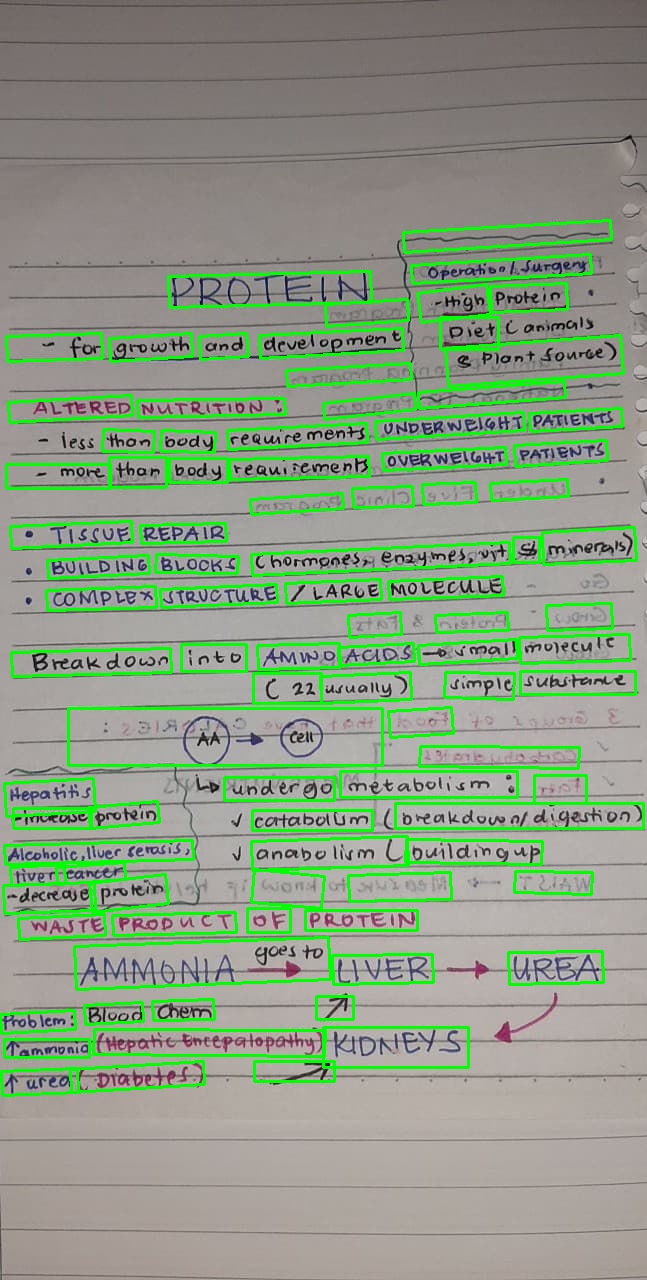 Operation/Surgery
-High Protein
Diet (animals
& Plant Source)
PROTEIN
- for growth and development
ALTERED NUTRITION:
- less than body requirements UNDERWEIGHT PATIENTS
- more than body requirements OVERWEIGHT PATIENTS
• TISSUE REPAIR
• BUILDING BLOCKS (hormones, enzymes, vit & minerals)
• COMPLEX STRUCTURE / LARGE MOLECULE
Breakdown into AMINO ACIDS → small molecule
(22 usually) simple substance
AA → cell
↳ undergo metabolism:
✓ catabolism (breakdown/digestion)
✓ anabolism (building up
Hepatitis
-increase protein
Alcoholic, liver serosis,
liver cancer
-decrease protein
WASTE PRODUCT OF PROTEIN
AMMONIA goes to → LIVER → UREA
KIDNEYS
Problem: Blood Chem
↑ammonia (Hepatic Encepalopathy)
↑ urea (Diabetes)